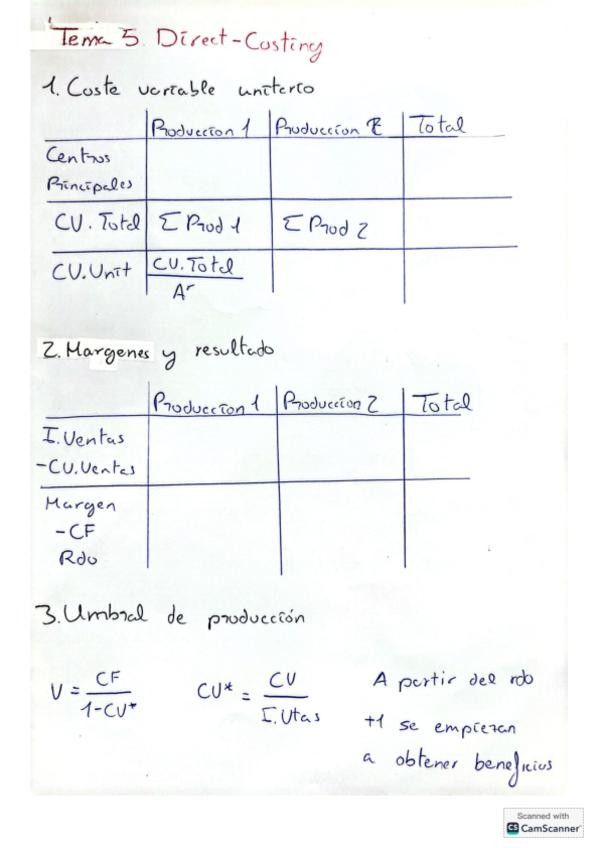 Tema 5. Direct-Costing
1. Coste variable unitario
Produccion 1 Produccion 2 Total
Centros
Principales
CV. Total Σ Prod 1 Σ Prod 2
CV. Unit CV. Total
Ar
2. Margenes y resultado
Produccion 1 Produccion 2 Total
I. Ventas
-CV. Ventas
Margen
-CF
Rdo
3. Umbral de producción
V = CF / 1-CV* CV* = CV / I. Vtas A partir del rdo
+1 se empiezan
a obtener beneficius
Scanned with
CS CamScanner